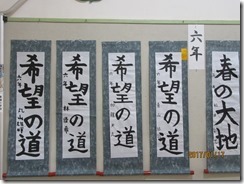 六年
春の大地
希望の道
希望の道
希望の道
希望の道